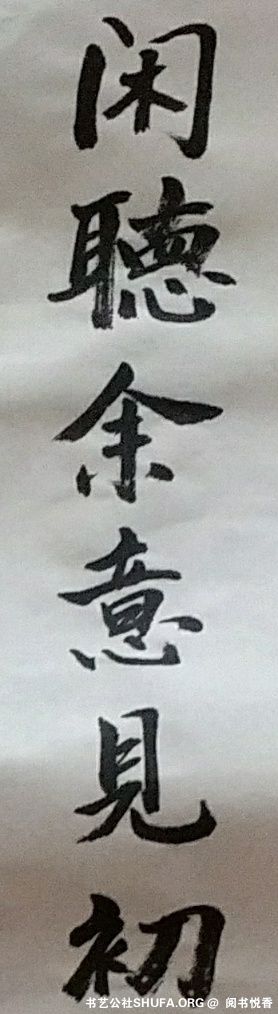 闲聽余意見初
书艺公社SHUFA.ORG @ 阅书悦香